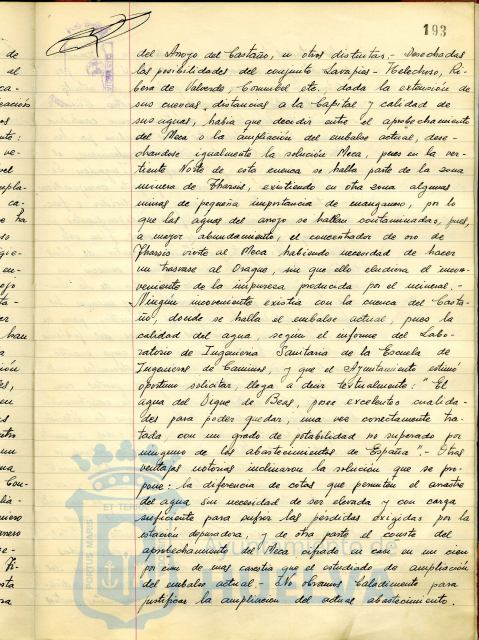 193
del Arroyo del Castaño, u otros distintas.- Desechadas
las posibilidades del conjunto Lavapies - Helechoso, Ri-
bera de Valverde, Corumbel etc., dada la extensión de
sus cuencas, distancias a la Capital y calidad de
sus aguas, habia que decidir entre el aprobechamiento
del Meca o la ampliación del embalse actual, dese-
chandose igualmente la solución Meca, pues en la ver-
tiente Norte de esta cuenca se halla parte de la zona
minera de Tharsis, existiendo en otra zona algunas
minas de pequeña importancia de manganeso, por lo
que las aguas del arroyo se hallan contaminadas, pues,
a mayor abundamiento, el concentrador de oro de
Tharsis vierte al Meca habiendo necesidad de hacer
un trasvase al Oraque, sin que ello eludiera el incon-
veniente de la impureza producida por el mineral.-
Ningún inconveniente existia con la cuenca del Casta-
ño, donde se halla el embalse actual, pues la
calidad del agua, según el informe del Labo-
ratorio de Ingenieria Sanitaria de la Escuela de
Ingenieros de Caminos, y que el Ayuntamiento estimó
oportuno solicitar, llega a decir textualmente: "El
agua del Dique de Beas, posee excelentes cualida-
des para poder quedar, una vez correctamente tra-
tada, con un grado de potabilidad no superado por
ninguno de los abastecimientos de España".- Otras
ventajas notorias inclinaron la solución que se pro-
pone: la diferencia de cotas que permiten el arrastre
del agua sin necesidad de ser elevada y con carga
suficiente para sufrir las pérdidas exigidas por la
estación depuradora, y de otra parte el costo del
aprobechamiento del Meca cifrado en casi en un cien
por cien de mas carestia que el estudiado de ampliación
del embalse actual.- No obramos baladimente para
justificar la ampliación del actual abastecimiento.
ET TERRAE
PORTUS MARIS
Ayuntamiento de